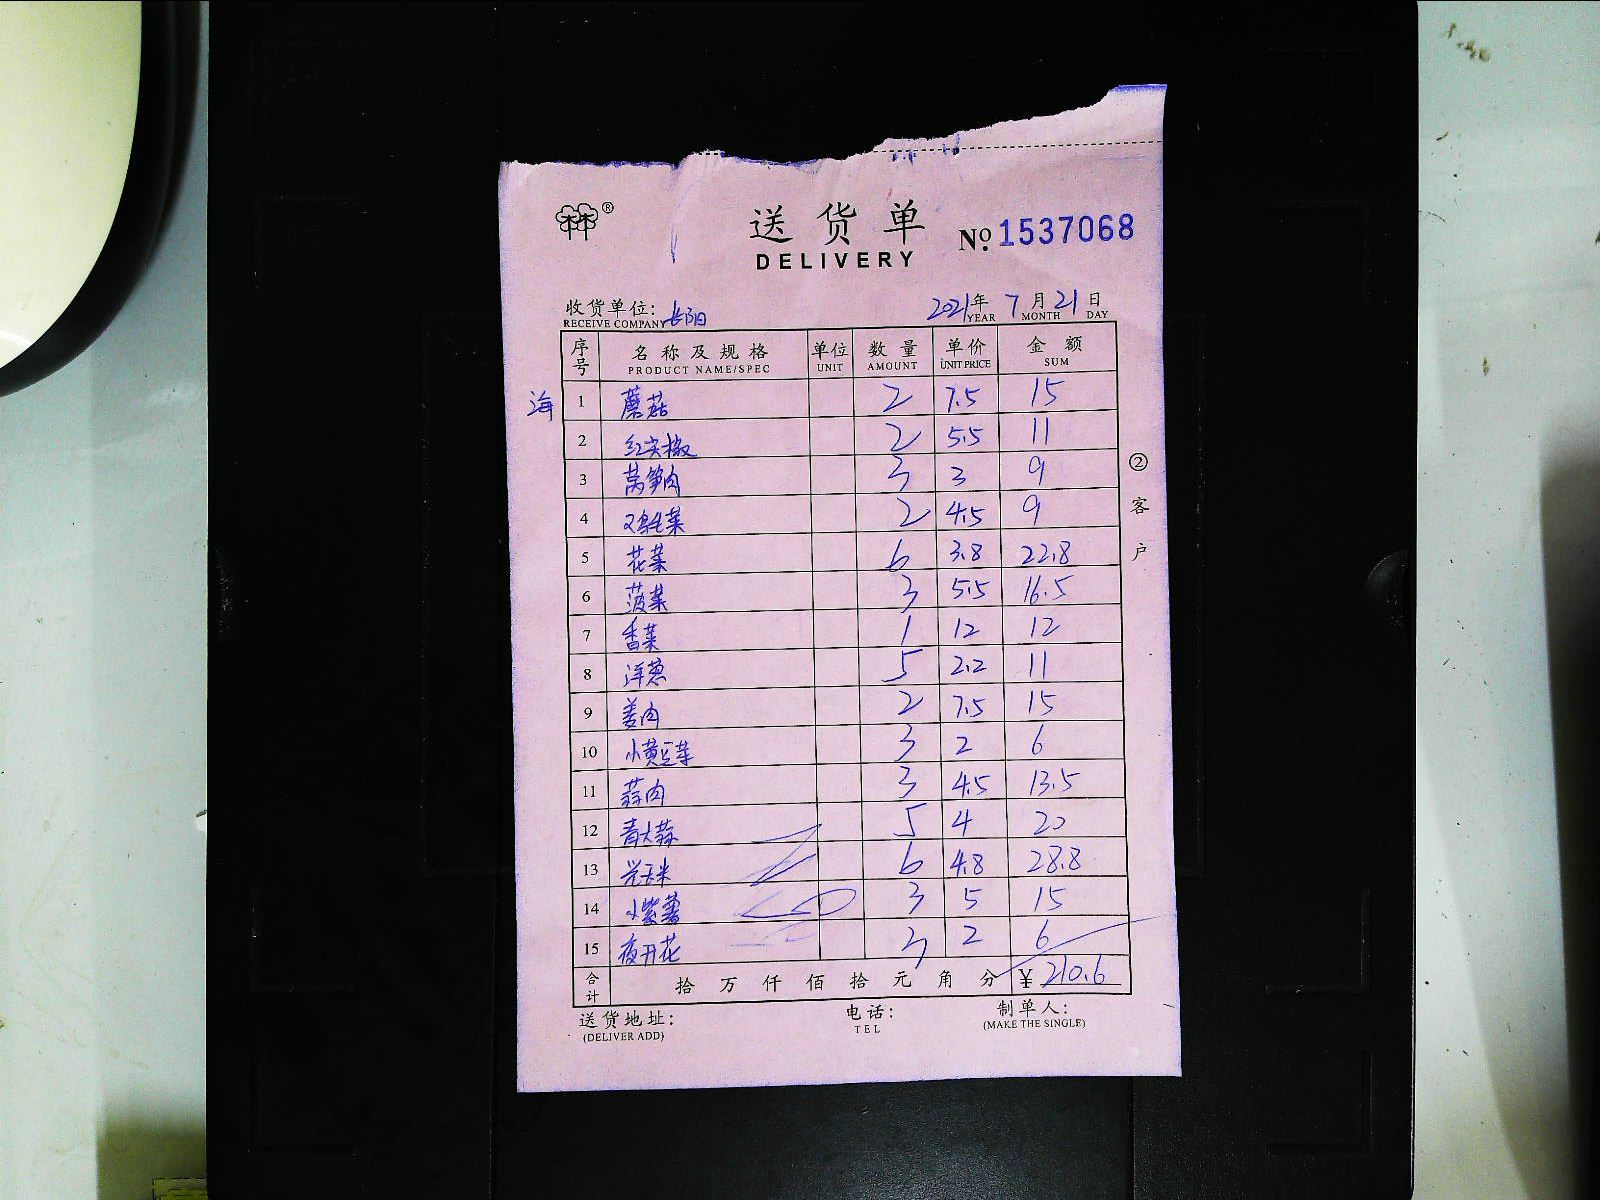 林®
送货单
DELIVERY
No. 1537068
收货单位: 长阳 2021年 7月 21日
RECEIVE COMPANY YEAR MONTH DAY
序号 名称及规格 单位 数量 单价 金额
PRODUCT NAME/SPEC UNIT AMOUNT UNIT PRICE SUM
海 1 蘑菇 2 7.5 15
2 红尖椒 2 5.5 11
3 莴笋肉 3 3 9
4 鸡毛菜 2 4.5 9
5 花菜 6 3.8 22.8
6 菠菜 3 5.5 16.5
7 香菜 1 12 12
8 洋葱 5 2.2 11
9 姜肉 2 7.5 15
10 小黄豆芽 3 2 6
11 蒜肉 3 4.5 13.5
12 青大蒜 5 4 20
13 光玉米 6 4.8 28.8
14 小紫薯 3 5 15
15 夜开花 3 2 6
合计 拾万仟佰拾元角分 ¥210.6
送货地址: 电话: 制单人:
(DELIVER ADD) TEL (MAKE THE SINGLE)
②客户